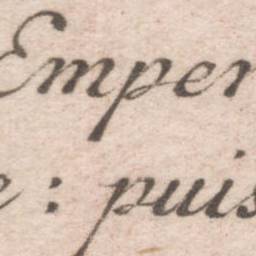 Emper
e : puis